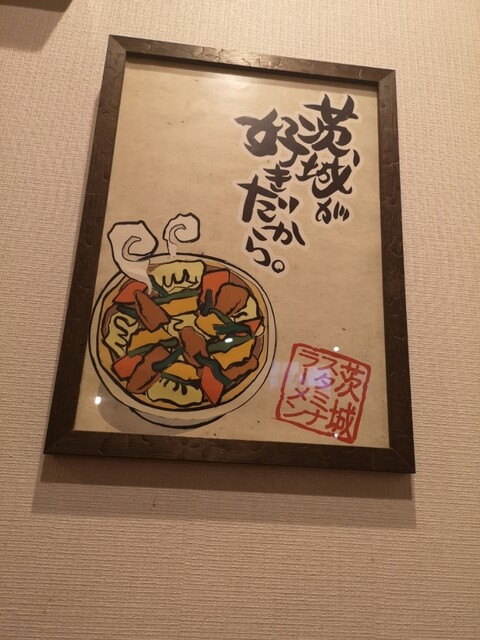 茨城が
好きだから。
茨城
スタミナ
ラーメン